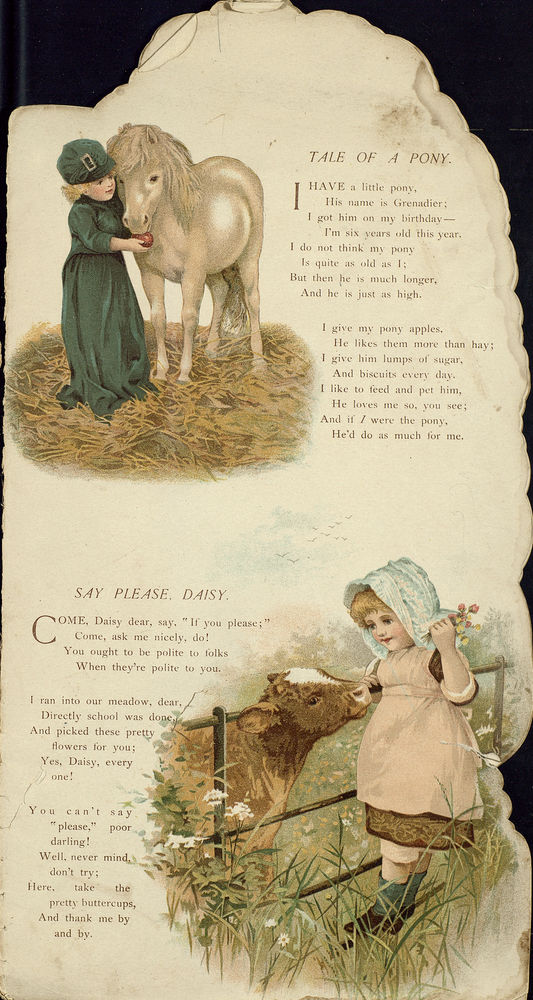 TALE OF A PONY.
I HAVE a little pony,
His name is Grenadier;
I got him on my birthday—
I'm six years old this year.
I do not think my pony
Is quite as old as I;
But then he is much longer,
And he is just as high.
I give my pony apples,
He likes them more than hay;
I give him lumps of sugar,
And biscuits every day.
I like to feed and pet him,
He loves me so, you see;
And if I were the pony,
He'd do as much for me.
SAY PLEASE, DAISY.
COME, Daisy dear, say, "If you please;"
Come, ask me nicely, do!
You ought to be polite to folks
When they're polite to you.
I ran into our meadow, dear,
Directly school was done,
And picked these pretty
flowers for you;
Yes, Daisy, every
one!
You can't say
"please," poor
darling!
Well, never mind,
don't try;
Here, take the
pretty buttercups,
And thank me by
and by.